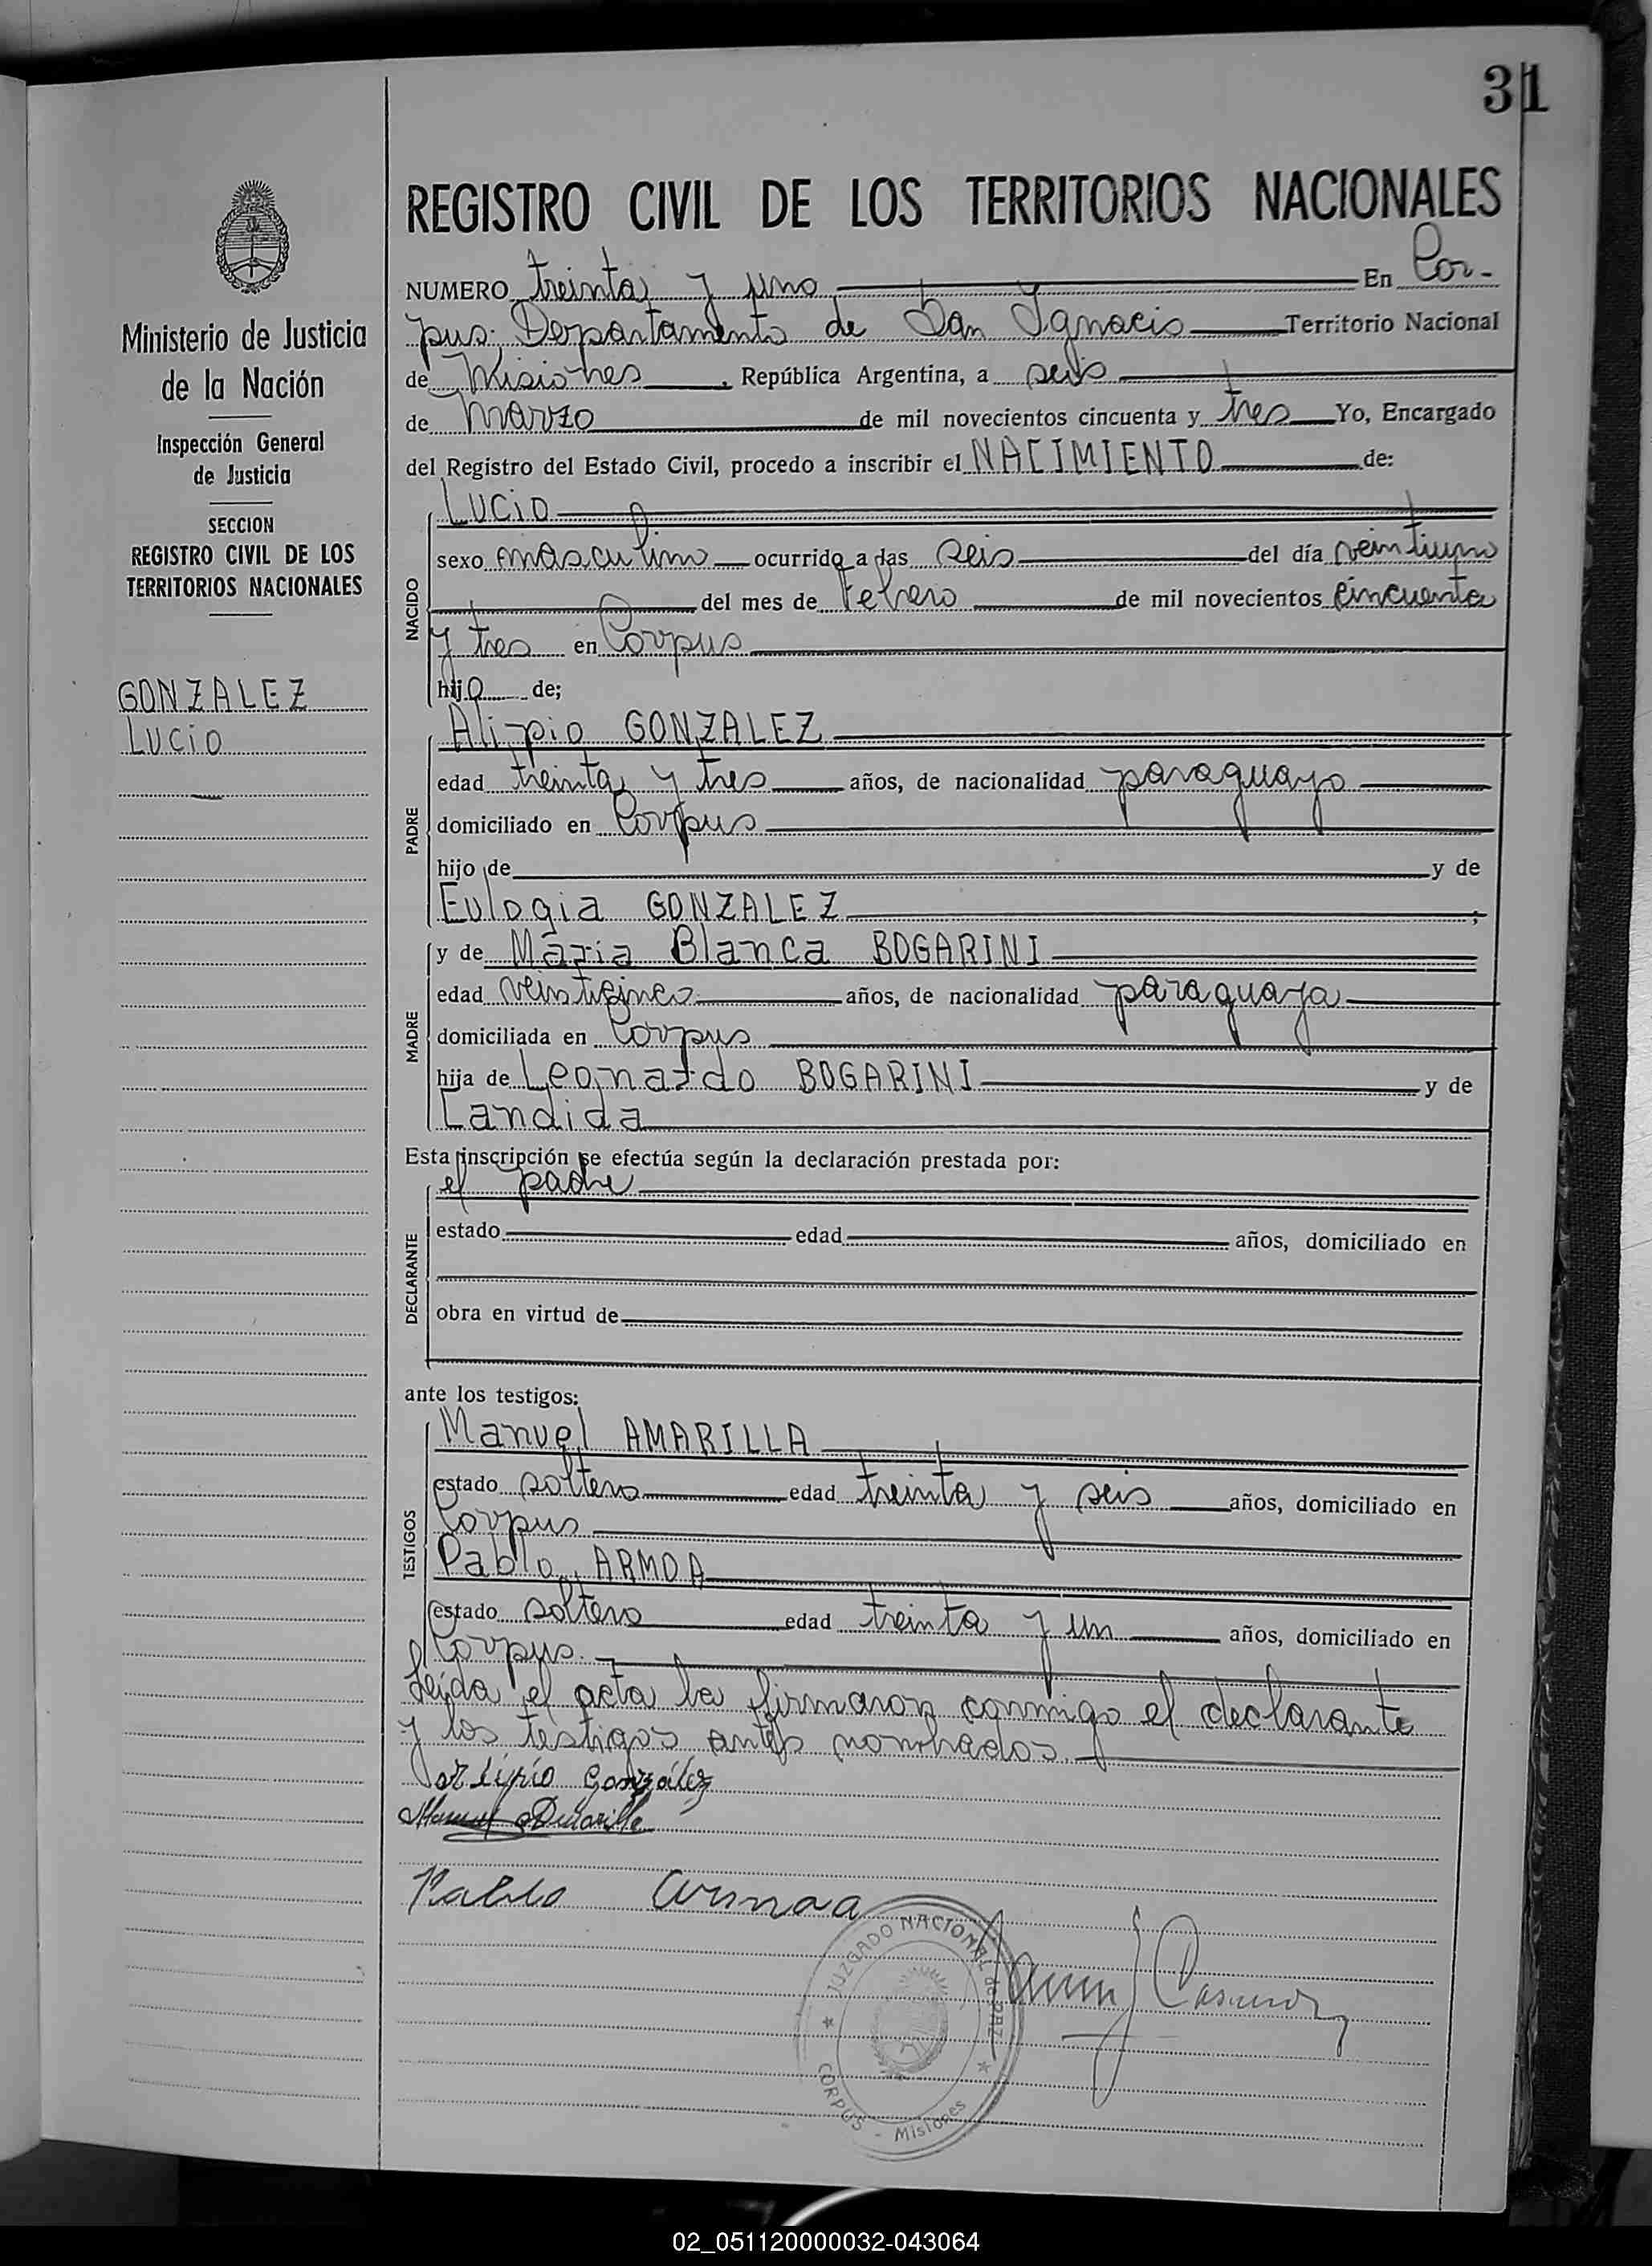 31
REGISTRO CIVIL DE LOS TERRITORIOS NACIONALES
Ministerio de Justicia
de la Nación
Inspección General
de Justicia
SECCION
REGISTRO CIVIL DE LOS
TERRITORIOS NACIONALES
GONZALEZ
Lucio
NUMERO treinta y uno En Cor-
pus: Departamento de San Ignacio Territorio Nacional
de Misiones, República Argentina, a seis
de Marzo de mil novecientos cincuenta y tres Yo, Encargado
del Registro del Estado Civil, procedo a inscribir el NACIMIENTO de:
NACIDO
Lucio
sexo masculino ocurrido a las seis del día veintiuno
del mes de febrero de mil novecientos cincuenta
y tres en Corpus
hijo de;
PADRE
Alipio GONZALEZ
edad treinta y tres años, de nacionalidad paraguayo
domiciliado en Corpus
hijo de y de
Eulogia GONZALEZ ;
MADRE
y de Maria Blanca BOGARINI
edad años, de nacionalidad paraguaya
domiciliada en Corpus
hija de Leonardo BOGARINI y de
Candida
Esta inscripción se efectúa según la declaración prestada por:
DECLARANTE
el padre
estado edad años, domiciliado en
obra en virtud de
ante los testigos:
TESTIGOS
Manuel AMARILLA
estado soltero edad treinta y seis años, domiciliado en
Corpus
Pablo ARMOA
estado soltero edad treinta y un años, domiciliado en
Corpus.
Leida el acta la firmaron conmigo el declarante
y los testigos antes nombrados.
González
Pablo Armoa
JUZGADO NACIONAL de PAZ
CORPUS - Misiones
02_051120000032-043064